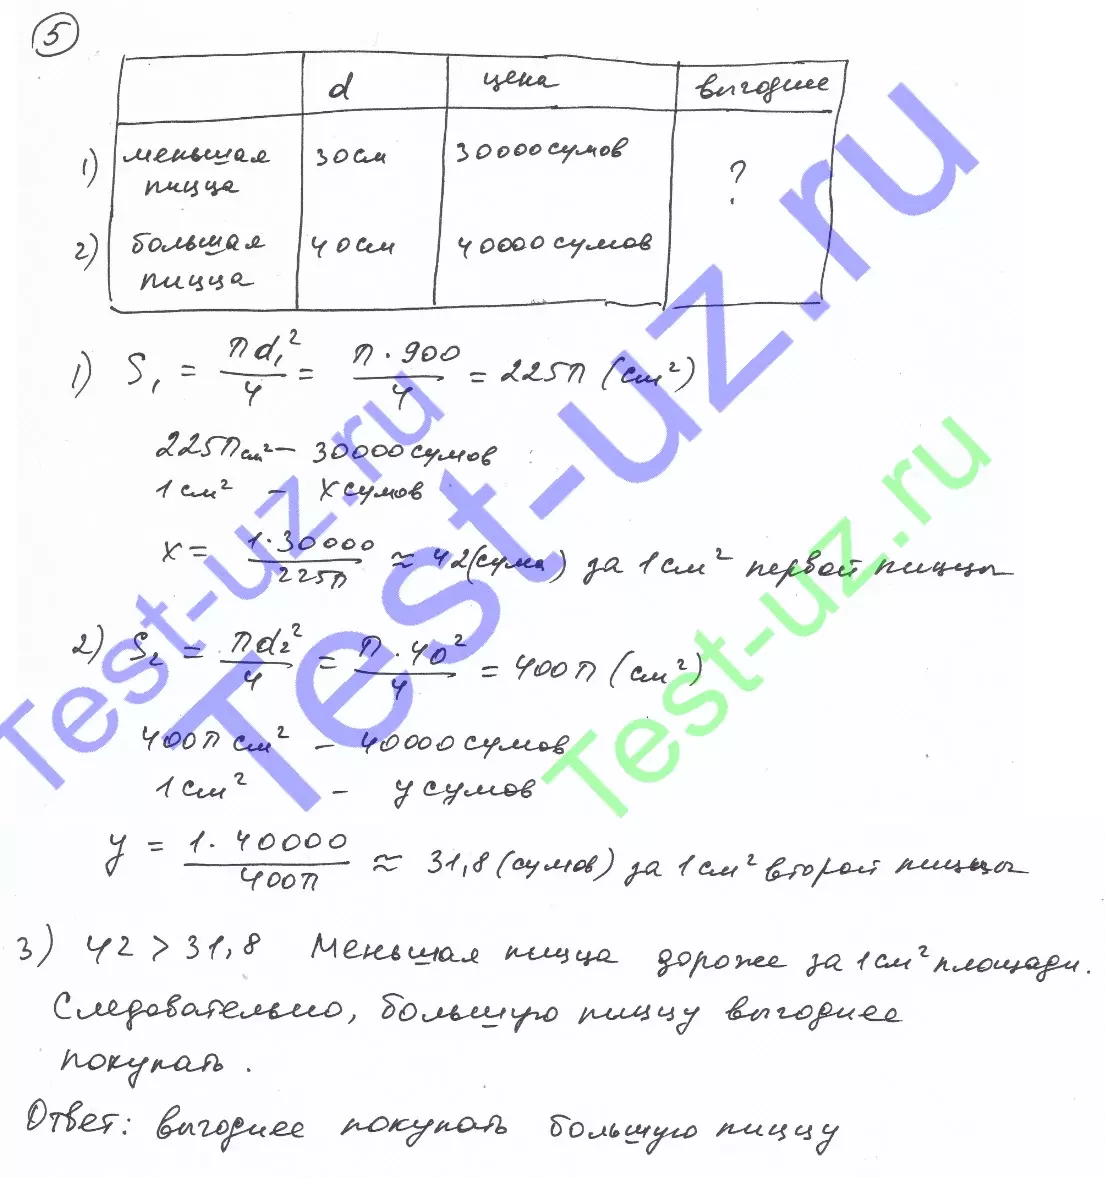 5
d цена выгоднее
1) меньшая пицца 30см 30000сумов ?
2) большая пицца 40см 40000сумов
1) S₁ = πd₁²/4 = π·900/4 = 225π (см²)
225πсм² – 30000сумов
1см² – х сумов
х = 1·30000/225π ≈ 42(сума) за 1см² первой пиццы
2) S₂ = πd₂²/4 = π·40²/4 = 400π (см²)
400π см² – 40000сумов
1см² – у сумов
у = 1·40000/400π ≈ 31,8(сумов) за 1см² второй пиццы
3) 42 > 31,8 Меньшая пицца дороже за 1см² площади.
Следовательно, большую пиццу выгоднее
покупать.
Ответ: выгоднее покупать большую пиццу
Test-uz.ru
Test-uz.ru
Test-uz.ru